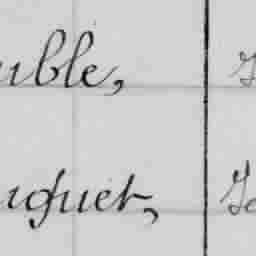 uble,
uguet,